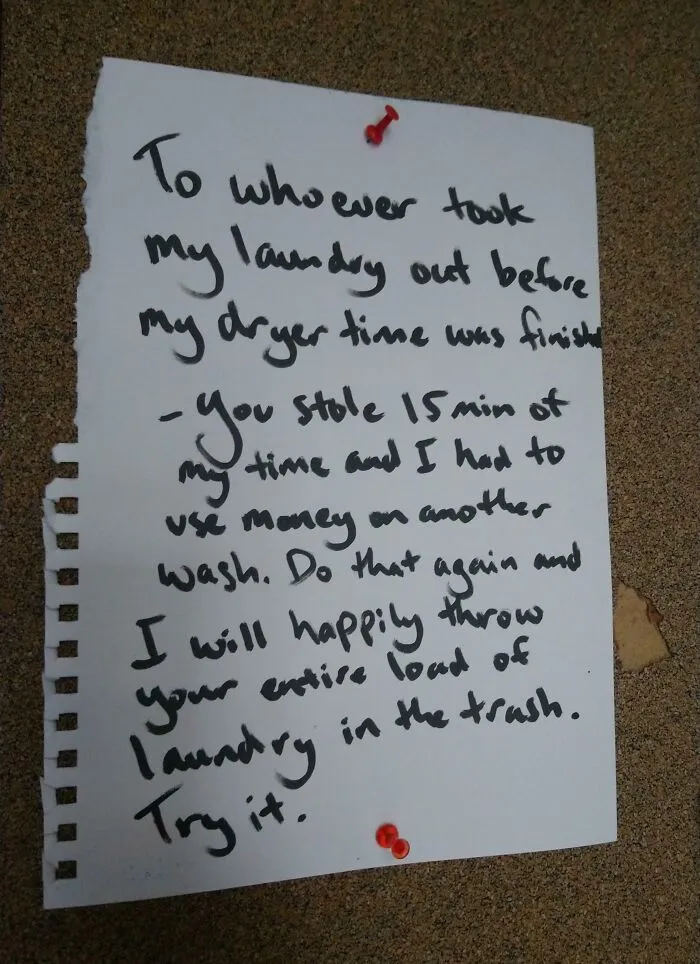 To whoever took
my laundry out before
my dryer time was finish
- You stole 15 min of
my time and I had to
use money on another
wash. Do that again and
I will happily throw
your entire load of
laundry in the trash.
Try it.